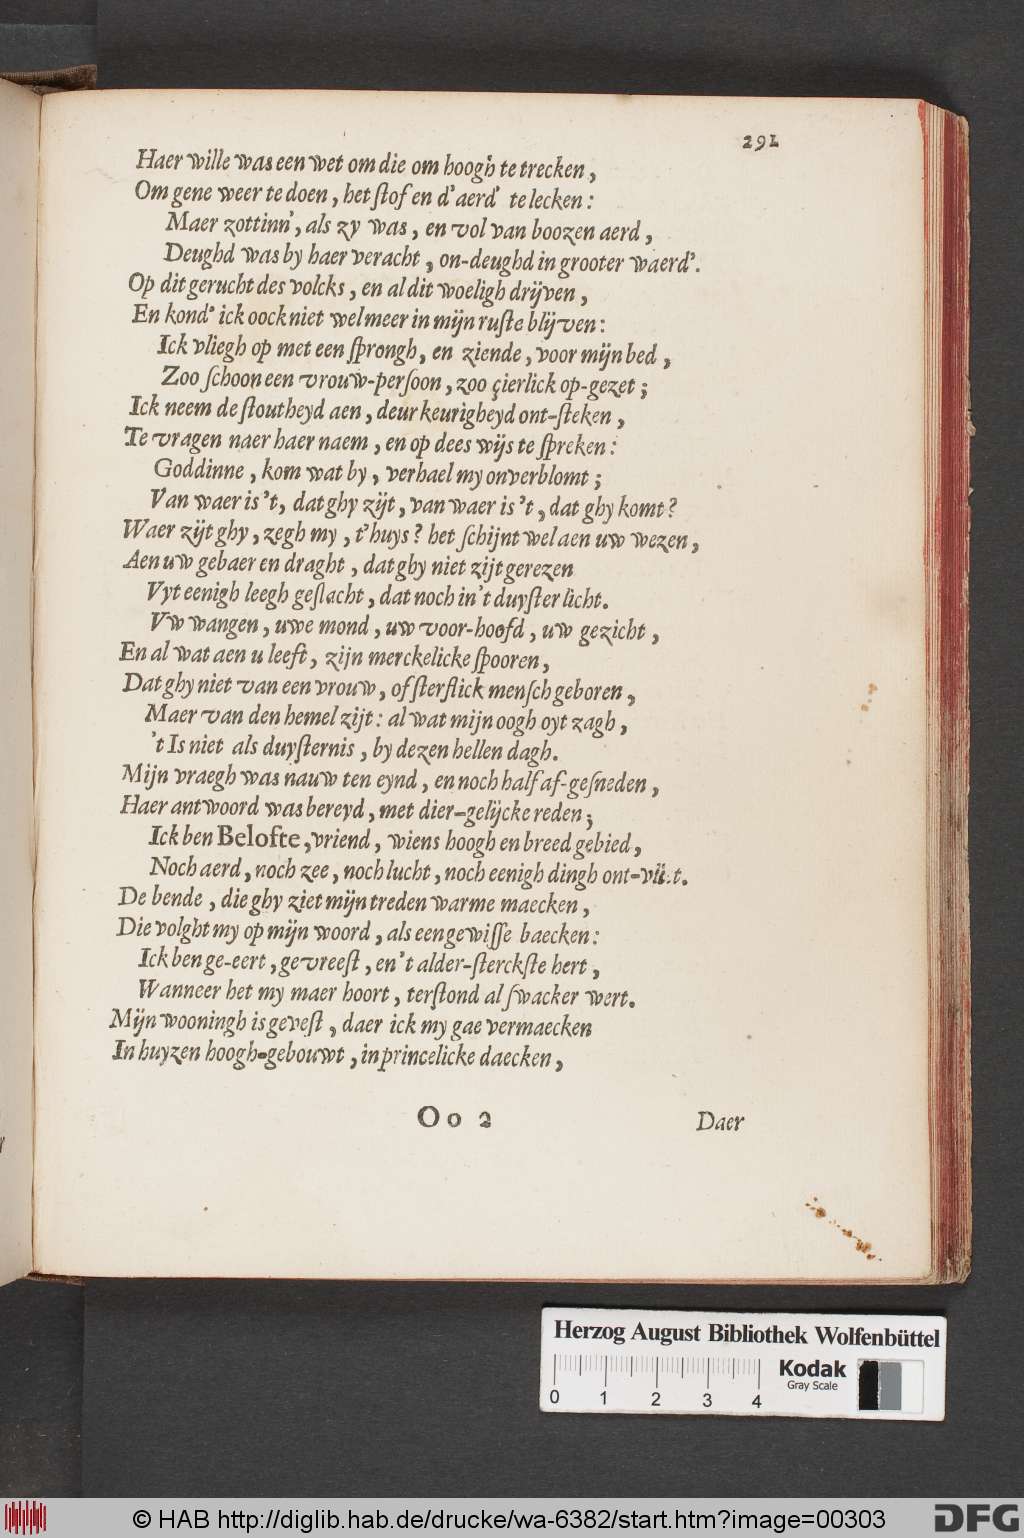 291
Haer wille was een wet om die om hoogh te trecken,
Om gene weer te doen, het ſtof en d'aerd' te lecken:
Maer zottinn', als zy was, en vol van boozen aerd,
Deughd was by haer veracht, on-deughd in grooter waerd'.
Op dit gerucht des volcks, en al dit woeligh drijven,
En kond' ick oock niet wel meer in mijn ruſte blijven:
Ick vliegh op met een ſprongh, en ziende, voor mijn bed,
Zoo ſchoon een vrouw-perſoon, zoo çierlick op-gezet;
Ick neem de ſtoutheyd aen, deur keurigheyd ont-ſteken,
Te vragen naer haer naem, en op dees wijs te ſpreken:
Goddinne, kom wat by, verhael my onverblomt;
Van waer is 't, dat ghy zijt, van waer is 't, dat ghy komt?
Waer zijt ghy, zegh my, t'huys? het ſchijnt wel aen uw wezen,
Aen uw gebaer en draght, dat ghy niet zijt gerezen
Vyt eenigh leegh geſlacht, dat noch in't duyſter licht.
Vw wangen, uwe mond, uw voor-hoofd, uw gezicht,
En al wat aen u leeft, zijn merckelicke ſpooren,
Dat ghy niet van een vrouw, of ſterflick menſch geboren,
Maer van den hemel zijt: al wat mijn oogh oyt zagh,
't Is niet als duyſternis, by dezen hellen dagh.
Mijn vraegh was nauw ten eynd, en noch half af-geſneden,
Haer antwoord was bereyd, met dier-gelijcke reden;
Ick ben Belofte, vriend, wiens hoogh en breed gebied,
Noch aerd, noch zee, noch lucht, noch eenigh dingh ont-vliet.
De bende, die ghy ziet mijn treden warme maecken,
Die volght my op mijn woord, als een gewiſſe baecken:
Ick ben ge-eert, gevreeſt, en't alder-ſterckſte hert,
Wanneer het my maer hoort, terſtond al ſwacker wert.
Mijn wooningh is geveſt, daer ick my gae vermaecken
In huyzen hoogh-gebouwt, in princelicke daecken,
Oo 2 Daer
Herzog August Bibliothek Wolfenbüttel
0 1 2 3 4
Kodak
Gray Scale
© HAB http://diglib.hab.de/drucke/wa-6382/start.htm?image=00303
DFG